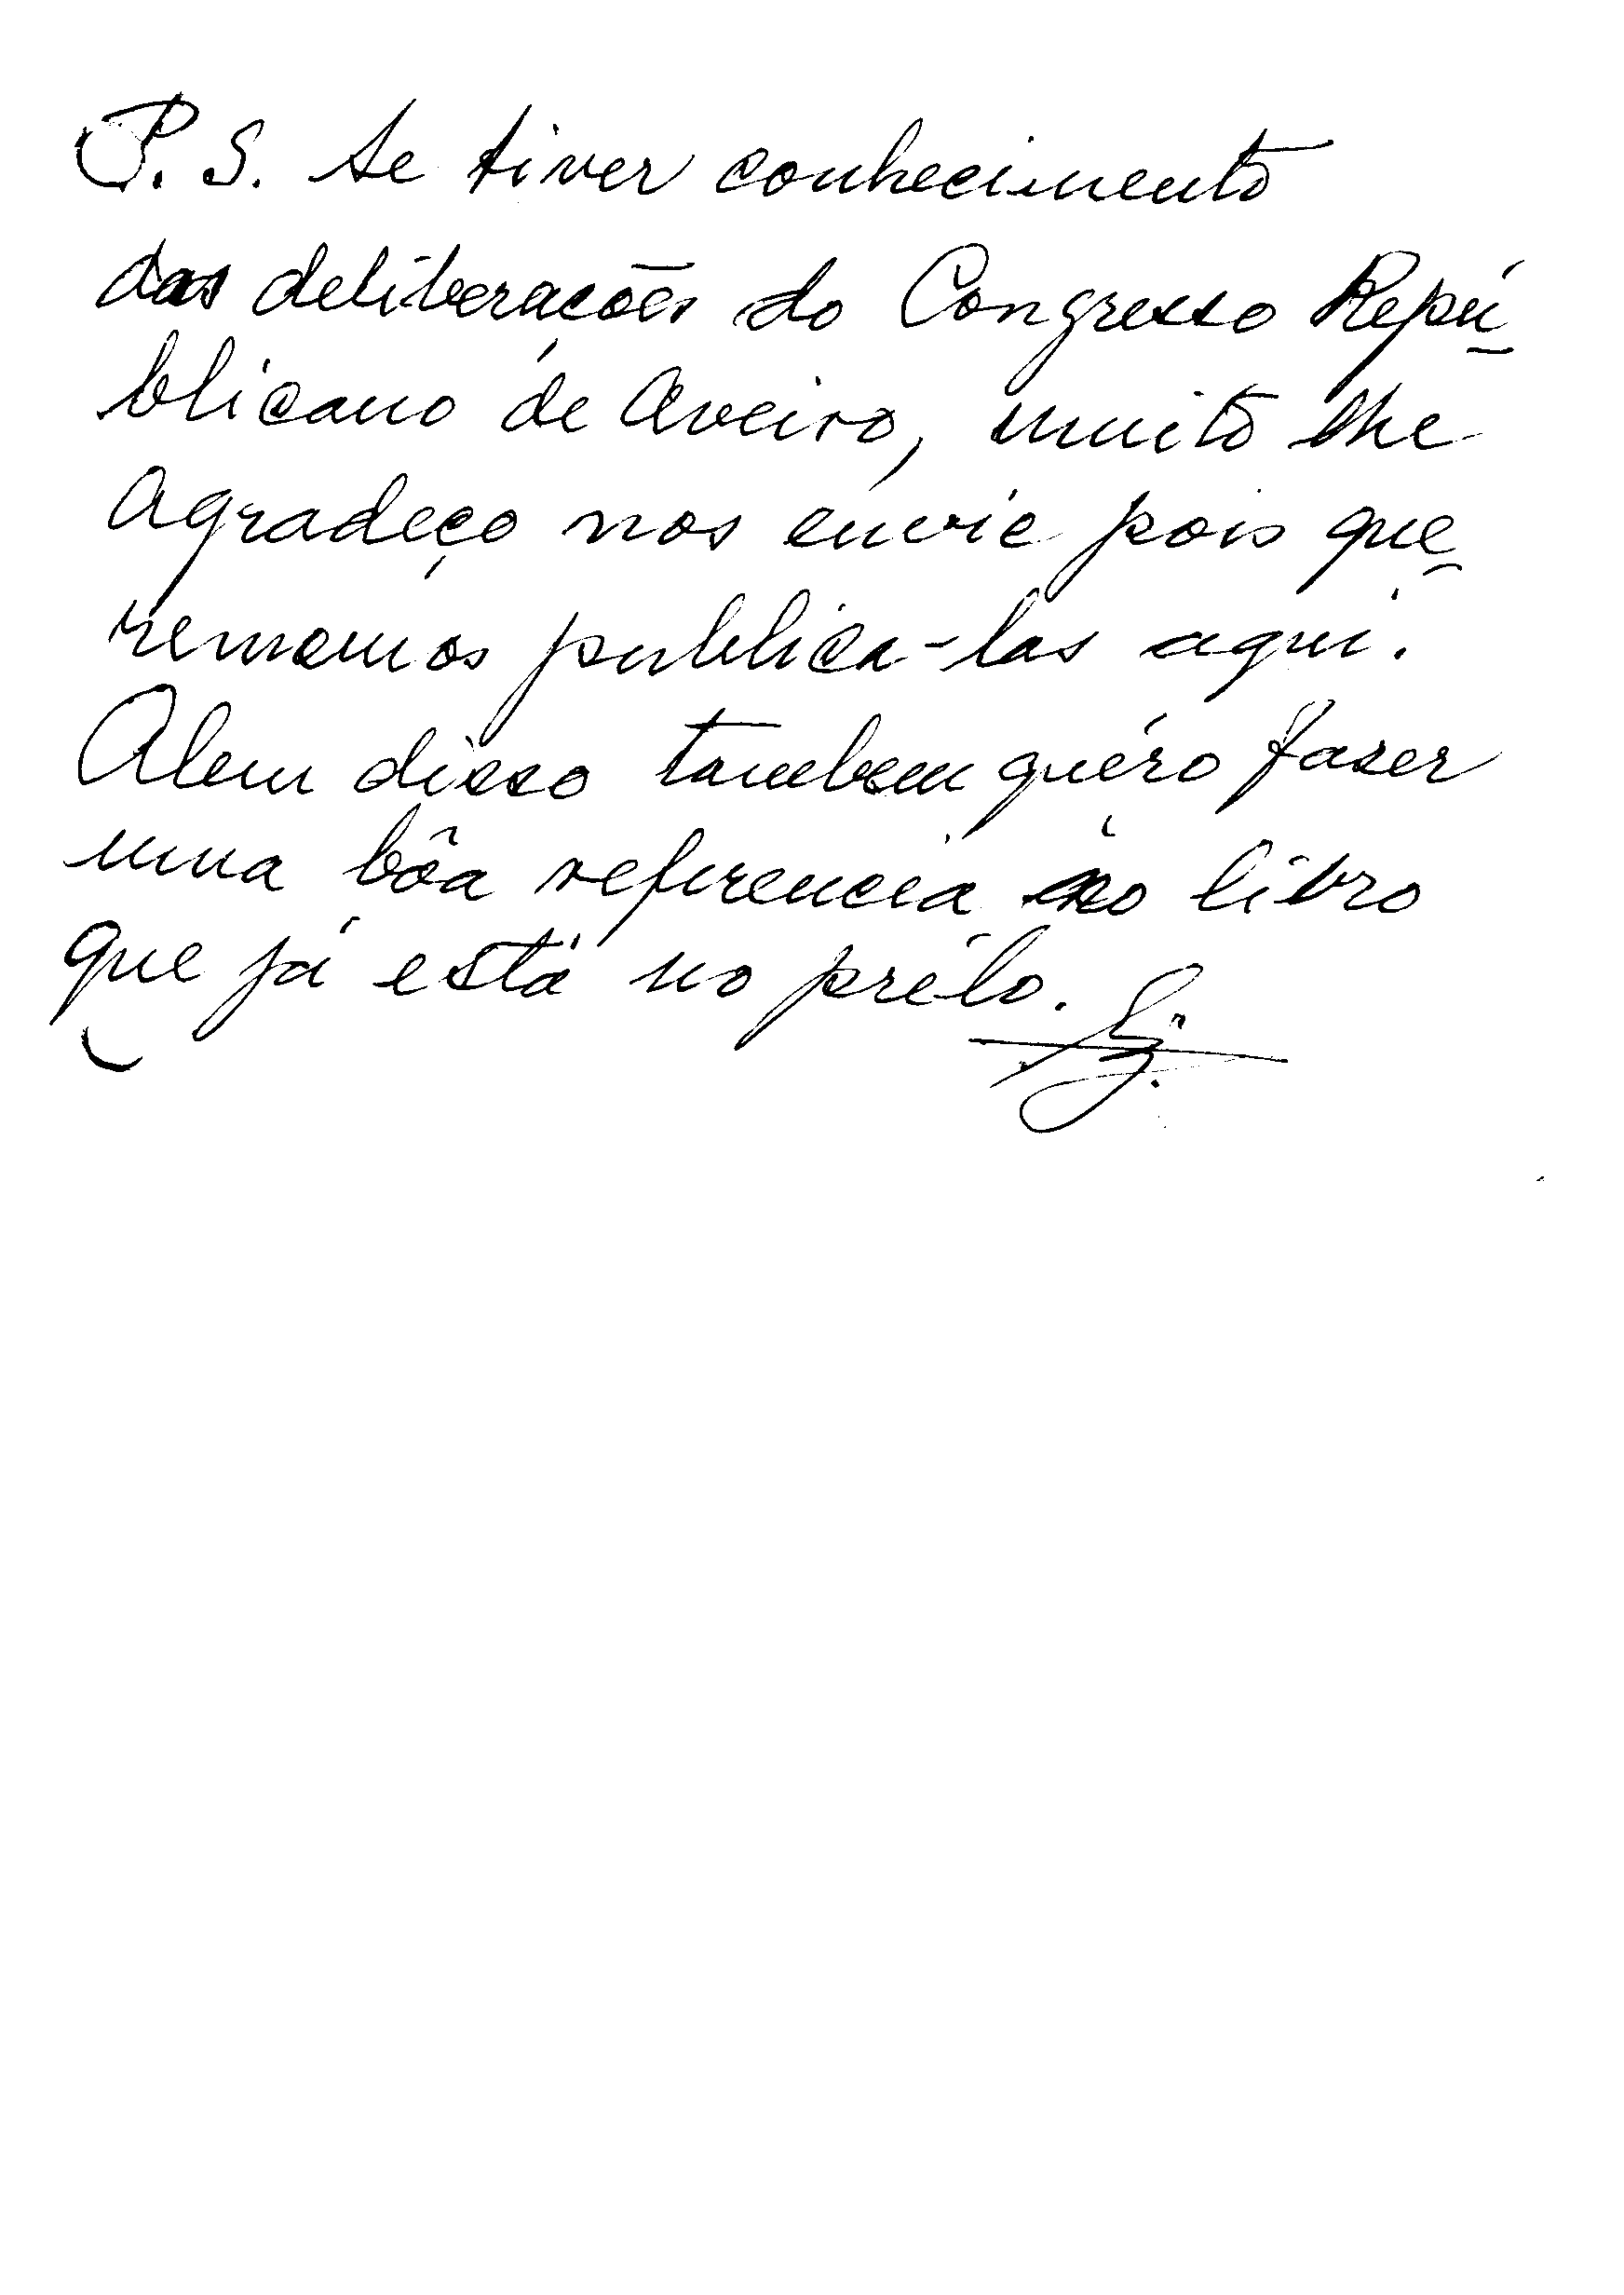 P. S. Se tiver conhecimento
das deliberações do Congresso Repú-
blicano de Aveiro, muito lhe
agradeço nos envie pois que-
remos publica-las aqui.
Alem disso tambem quéro faser
uma bôa referencia no livro
que já está no prélo.